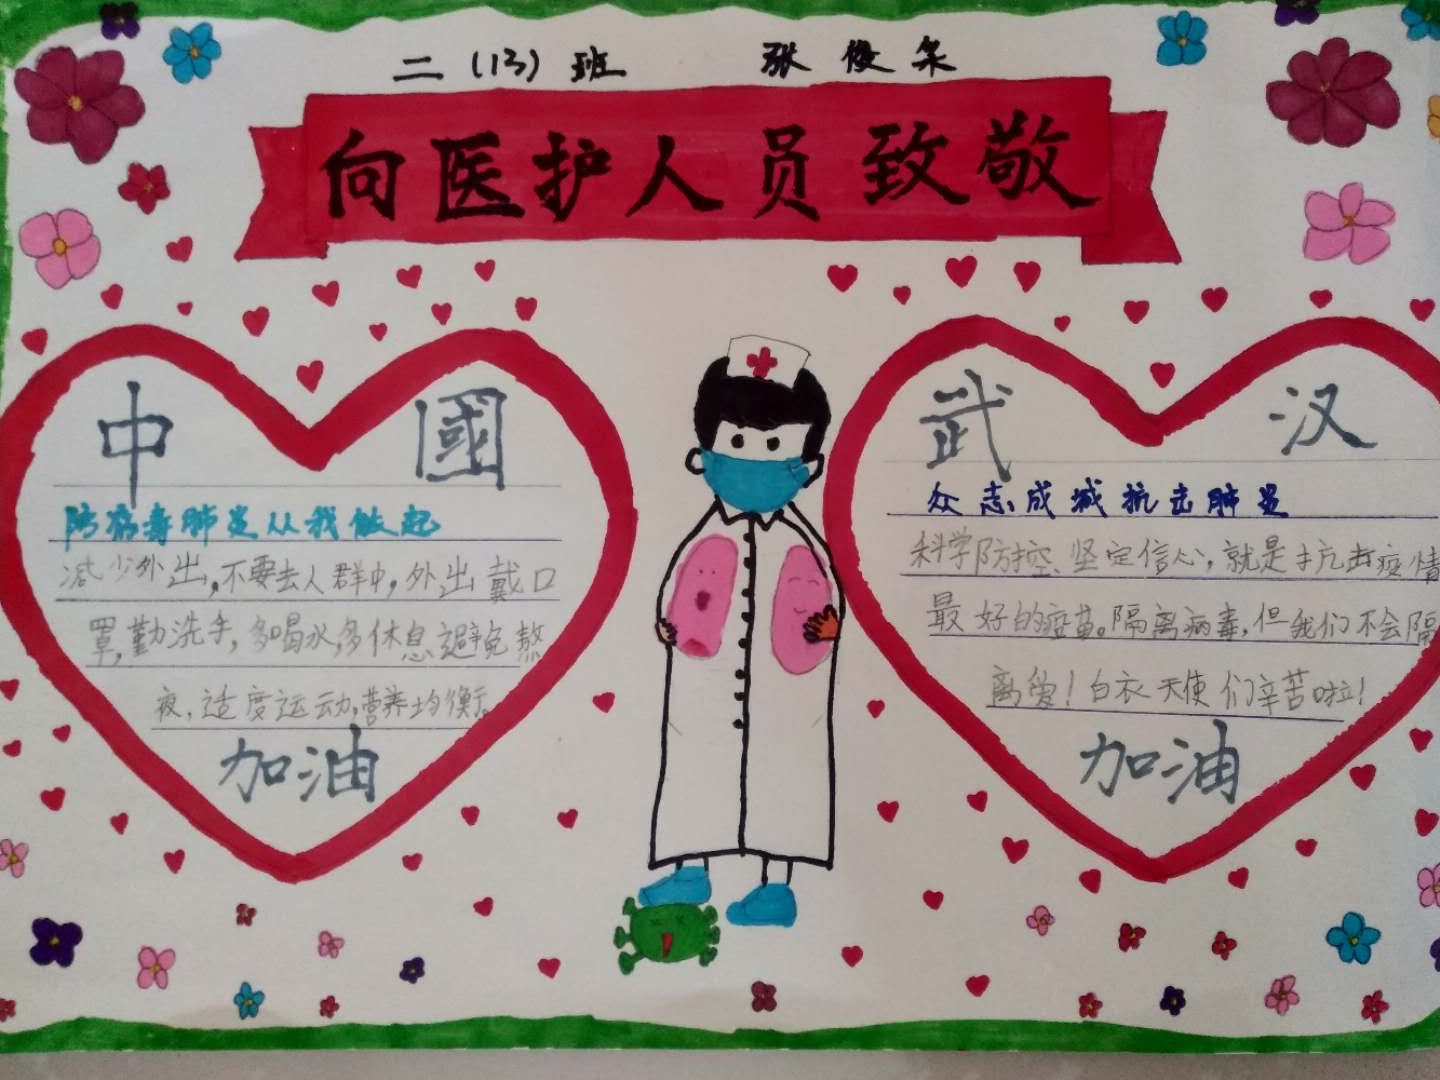 二（13）班 张俊杰
向医护人员致敬
中 國
防病毒肺炎从我做起
减少外出，不要去人群中，外出戴口
罩，勤洗手，多喝水，多休息避免熬
夜，适度运动，营养均衡。
加油
武 汉
众志成城抗击肺炎
科学防控、坚定信心，就是抗击疫情
最好的疫苗。隔离病毒，但我们不会隔
离爱！白衣天使们辛苦啦！
加油